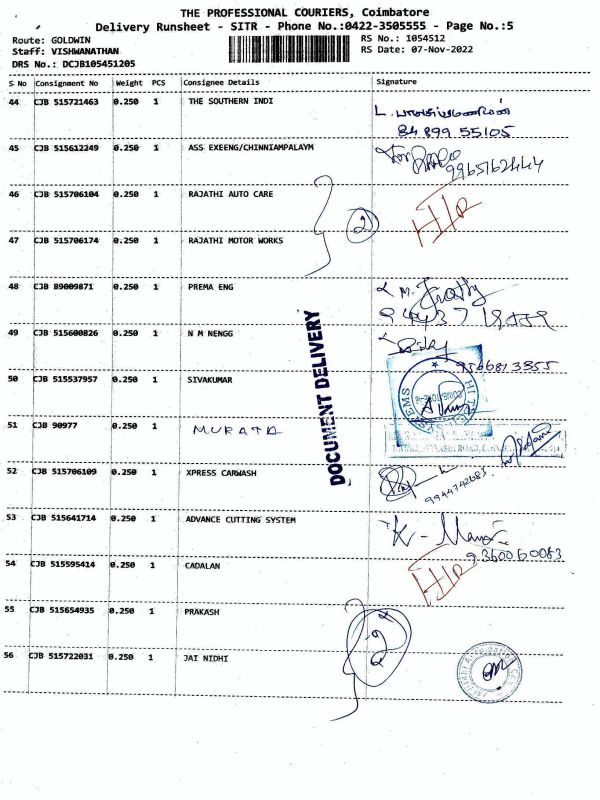 THE PROFESSIONAL COURIERS, Coimbatore
Delivery Runsheet - SITR - Phone No.:0422-3505555 - Page No.:5
Route: GOLDWIN RS No.: 1054512
Staff: VISHWANATHAN RS Date: 07-Nov-2022
DRS No.: DCJB105451205
S No Consignment No Weight PCS Consignee Details Signature
44 CJB 515721463 0.250 1 THE SOUTHERN INDI
84 899 55105
45 CJB 515612249 0.250 1 ASS EXEENG/CHINNIAMPALAYM
9965162444
46 CJB 515706104 0.250 1 RAJATHI AUTO CARE
2
47 CJB 515706174 0.250 1 RAJATHI MOTOR WORKS
48 CJB 89009871 0.250 1 PREMA ENG
49 CJB 515600826 0.250 1 N M NENGG
9566813355
50 CJB 515537957 0.250 1 SIVAKUMAR
51 CJB 90977 0.250 1 MURATA
DOCUMENT DELIVERY
52 CJB 515706109 0.250 1 XPRESS CARWASH
9944742683
53 CJB 515641714 0.250 1 ADVANCE CUTTING SYSTEM
9360060083
54 CJB 515595414 0.250 1 CADALAN
55 CJB 515654935 0.250 1 PRAKASH
56 CJB 515722031 0.250 1 JAI NIDHI